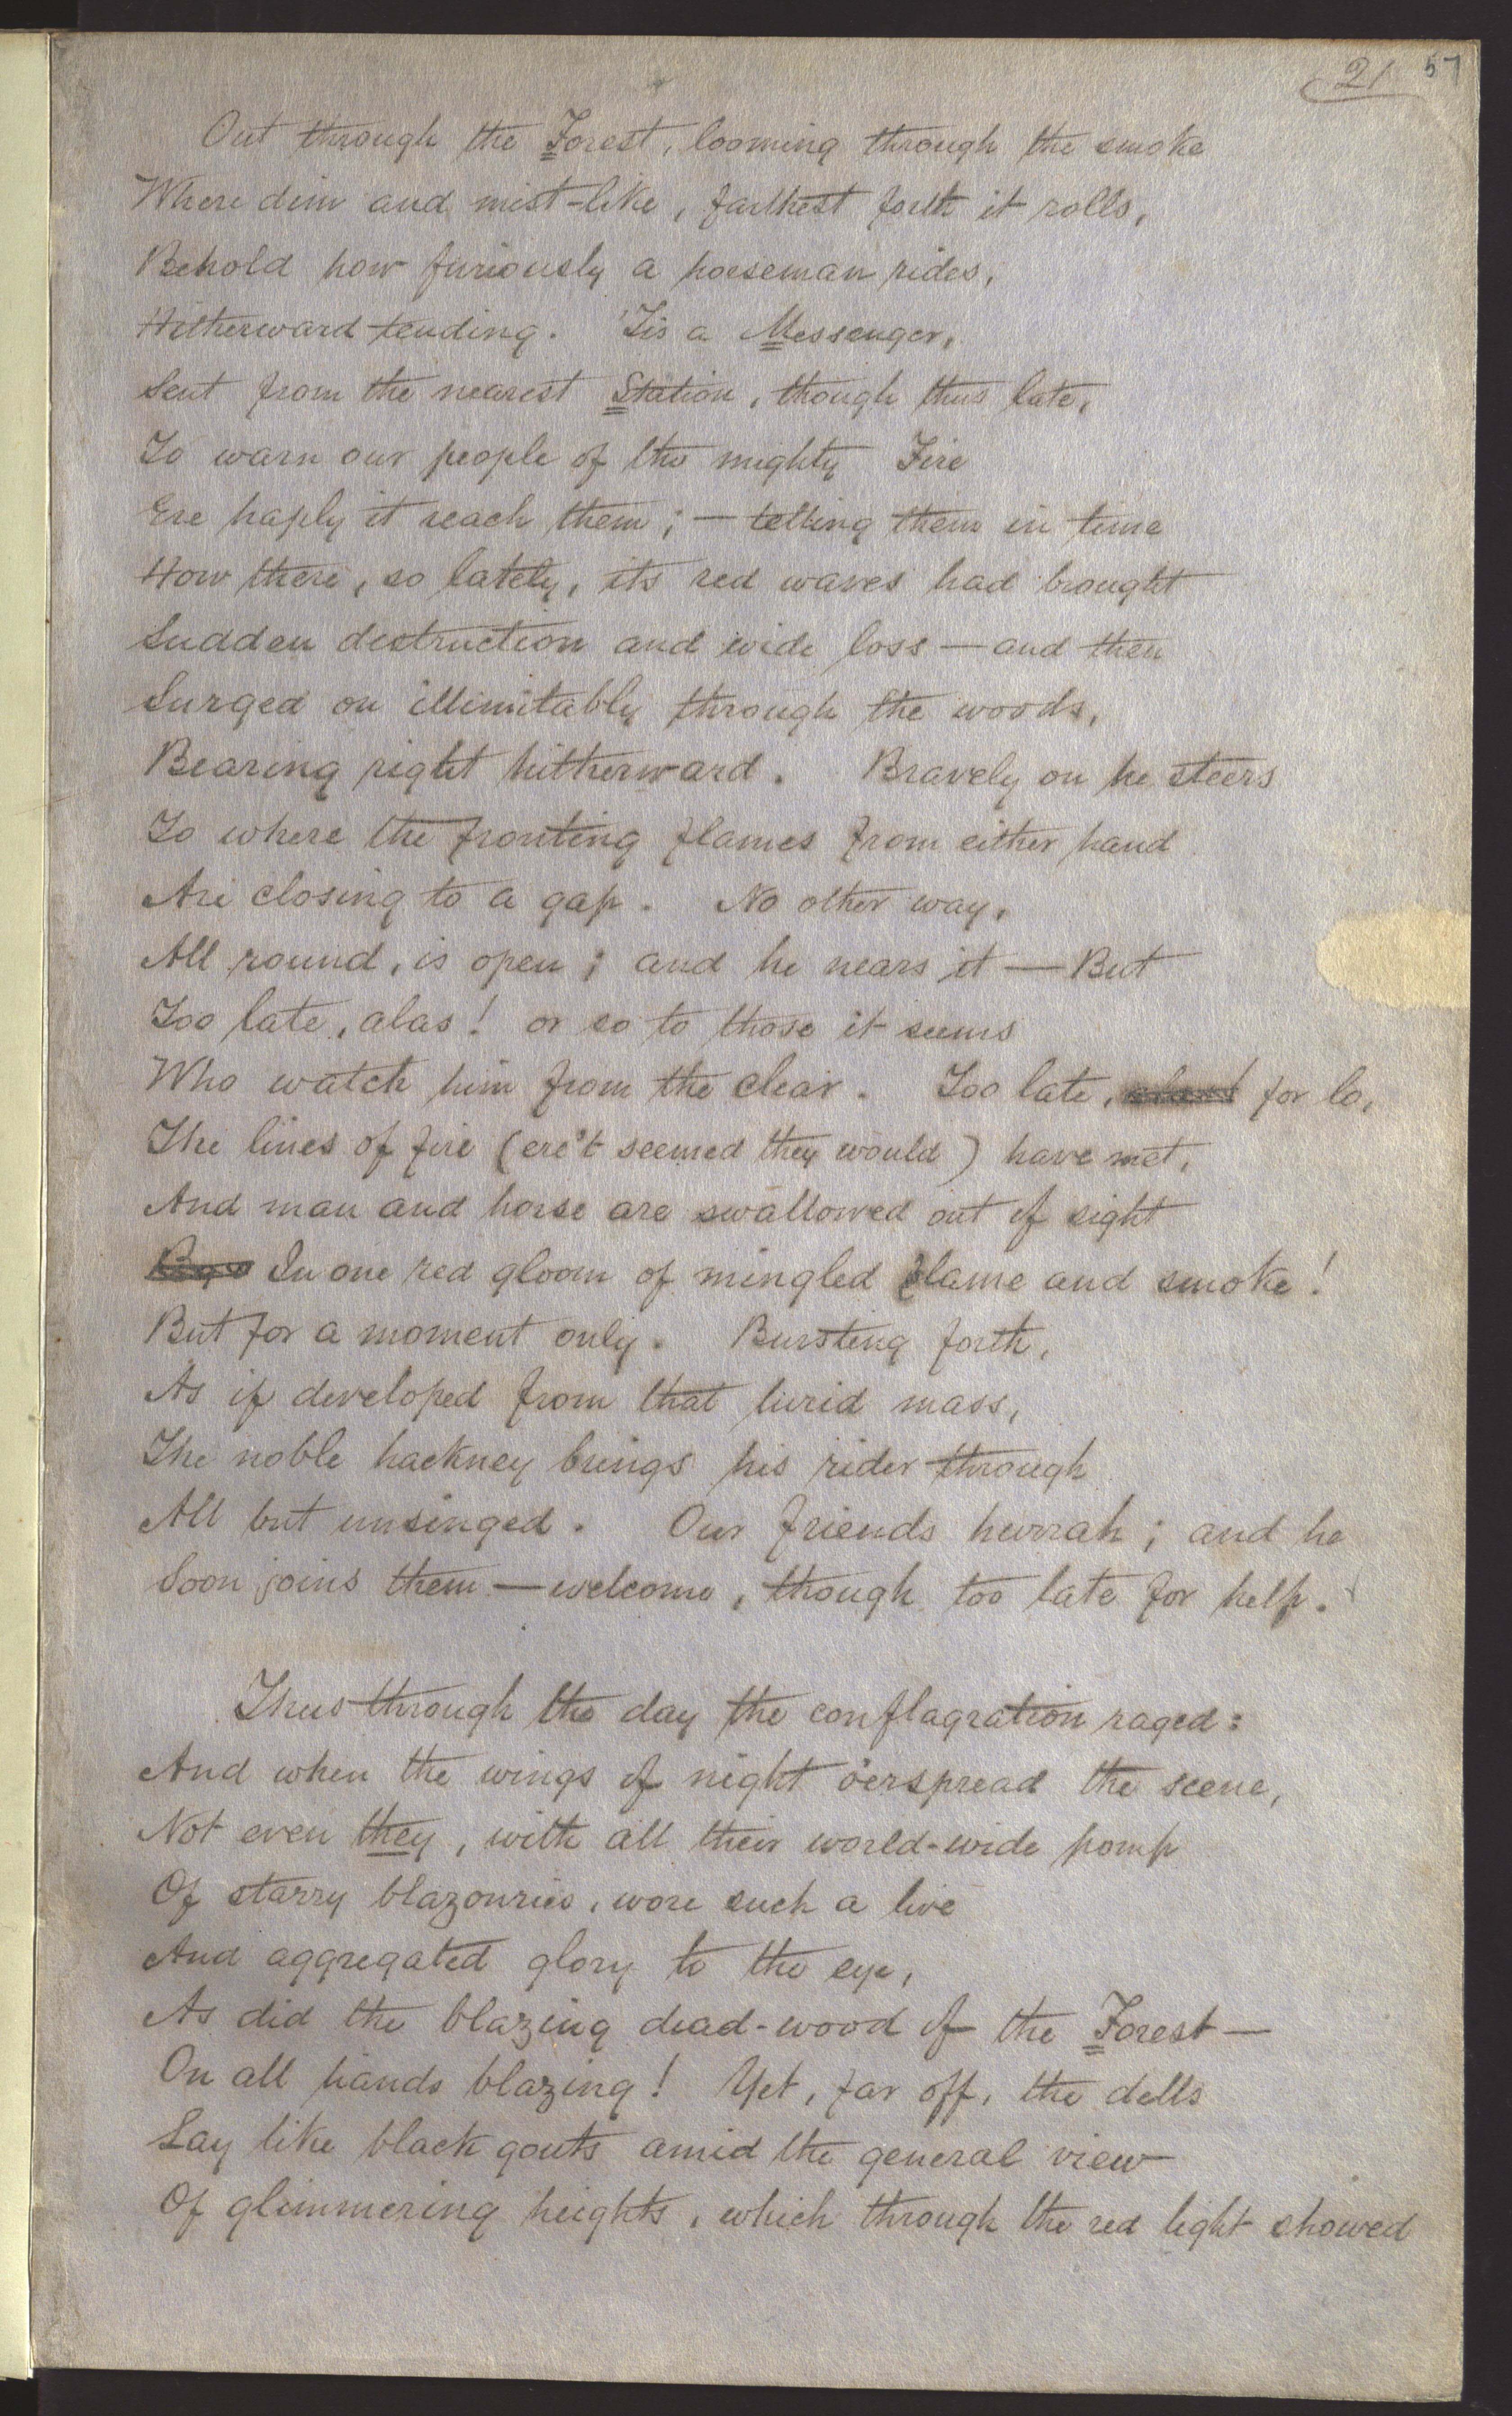 21 57
Out through the Forest, looming through the smoke
Where dim and mist-like, farthest forth it rolls,
Behold how furiously a horseman rides,
Hitherward tending. 'Tis a Messenger,
Sent from the nearest Station, though thus late,
To warn our people of the mighty Fire
Ere haply it reach them; — telling them in time
How there, so lately, its red waves had brought
Sudden destruction and wide loss — and then
Surged on illimitably through the woods,
Bearing right hitherward. Bravely on he steers
To where the fronting flames from either hand
Are closing to a gap. No other way,
All round, is open; and he nears it — But
Too late, alas! or so to those it seems
Who watch him from the clear. Too late, for lo,
The lines of fire (ere't seemed they would) have met,
And man and horse are swallowed out of sight
In one red gloom of mingled flame and smoke!
But for a moment only. Bursting forth,
As if developed from that lurid mass,
The noble hackney brings his rider through
All but unsinged. Our friends hurrah; and he
Soon joins them — welcome, though too late for help.
Thus through the day the conflagration raged:
And when the wings of night o'erspread the scene,
Not even they, with all their world-wide pomp
Of starry blazonries, wore such a live
And aggregated glory to the eye,
As did the blazing dead-wood of the Forest —
On all hands blazing! Yet, far off, the dells
Lay like black gouts amid the general view
Of glimmering heights, which through the red light showed